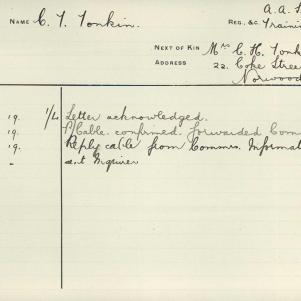 A.A.
NAME C. T. Tonkin.
REG., &C. Training
NEXT OF KIN Mrs C. H. Tonk
ADDRESS 22. Coke Stree
Norwood
19. 1/4 Letter acknowledged.
19. P/Cable. confirmed. forwarded Com
19. Reply cable from Commrs. Informat
" a.t Enquirer